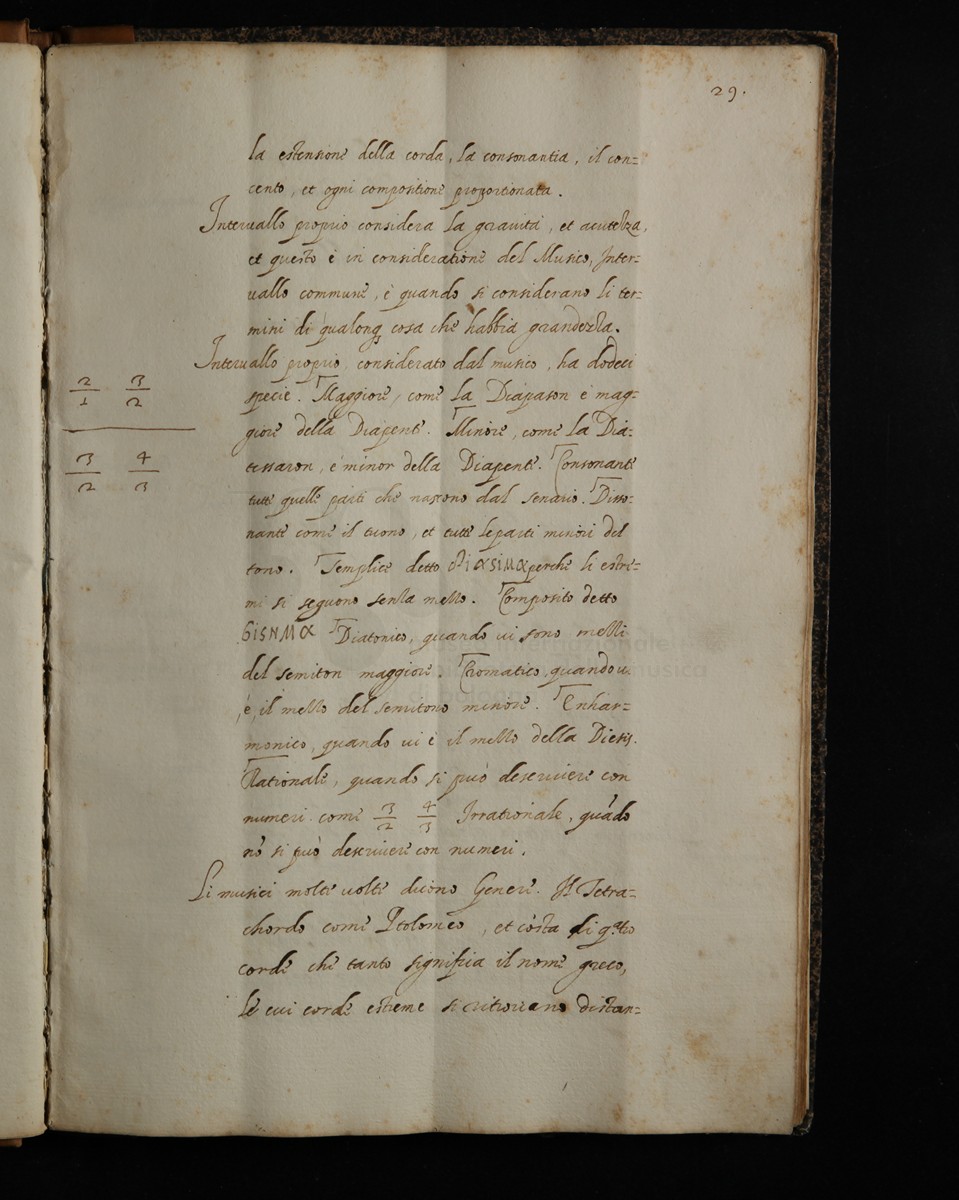 29.
la estensione della corda, la consonantia, il con=
cento, et ogni compositione proportionata.
Interuallo proprio considera la grauità, et acutezza,
et questo è in consideratione del Musico, Inter=
uallo commune, è quando si considerano li ter=
mini di qualonq cosa che habbia grandezza.
Interuallo proprio considerato dal musico, ha dodeci
specie. Maggiore, come la Diapason è mag=
giore della Diapente. Minore, come la Dia=
tessaron, è minor della Diapente. Consonante
tutte quelle parti che nascono dal senario. Disso=
nante come il tuono, et tutte le parti minori del
tono. Semplice detto perche li estre=
mi si seguono senza mezzo. Composito detto
Diatonico, quando ui sono mezzi
del semiton maggiore. Cromatico, quando u
è, il mezzo del semitono minore. Enhar=
monico, quando ui è il mezzo della Diesis.
Rationale, quando si può descriuere con
numeri come 3/2 4/3 Irrationale, quãdo
nõ si può descriuere con numeri.
Li musici molte uolte dicono Genere. Il Tetra=
chordo come Ptolomeo, et cõsta di q.tro
corde che tanto significa il nome greco,
le cui corde estreme si ritrouano distan=
2/1 3/2
3/2 4/3